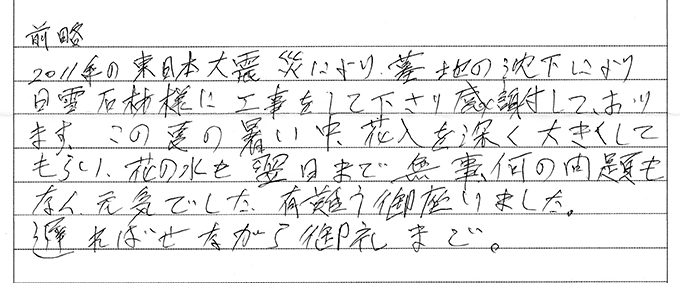 前略
2011年の東日本大震災により、墓地の沈下により
日雲石材様に工事をして下さり感謝して、おり
ます。この夏の暑い中、花入を深く大きくして
もらい、花の水も翌日まで無事、何の問題も
なく元気でした、有難う御座いました。
遅ればせながら御礼まで。